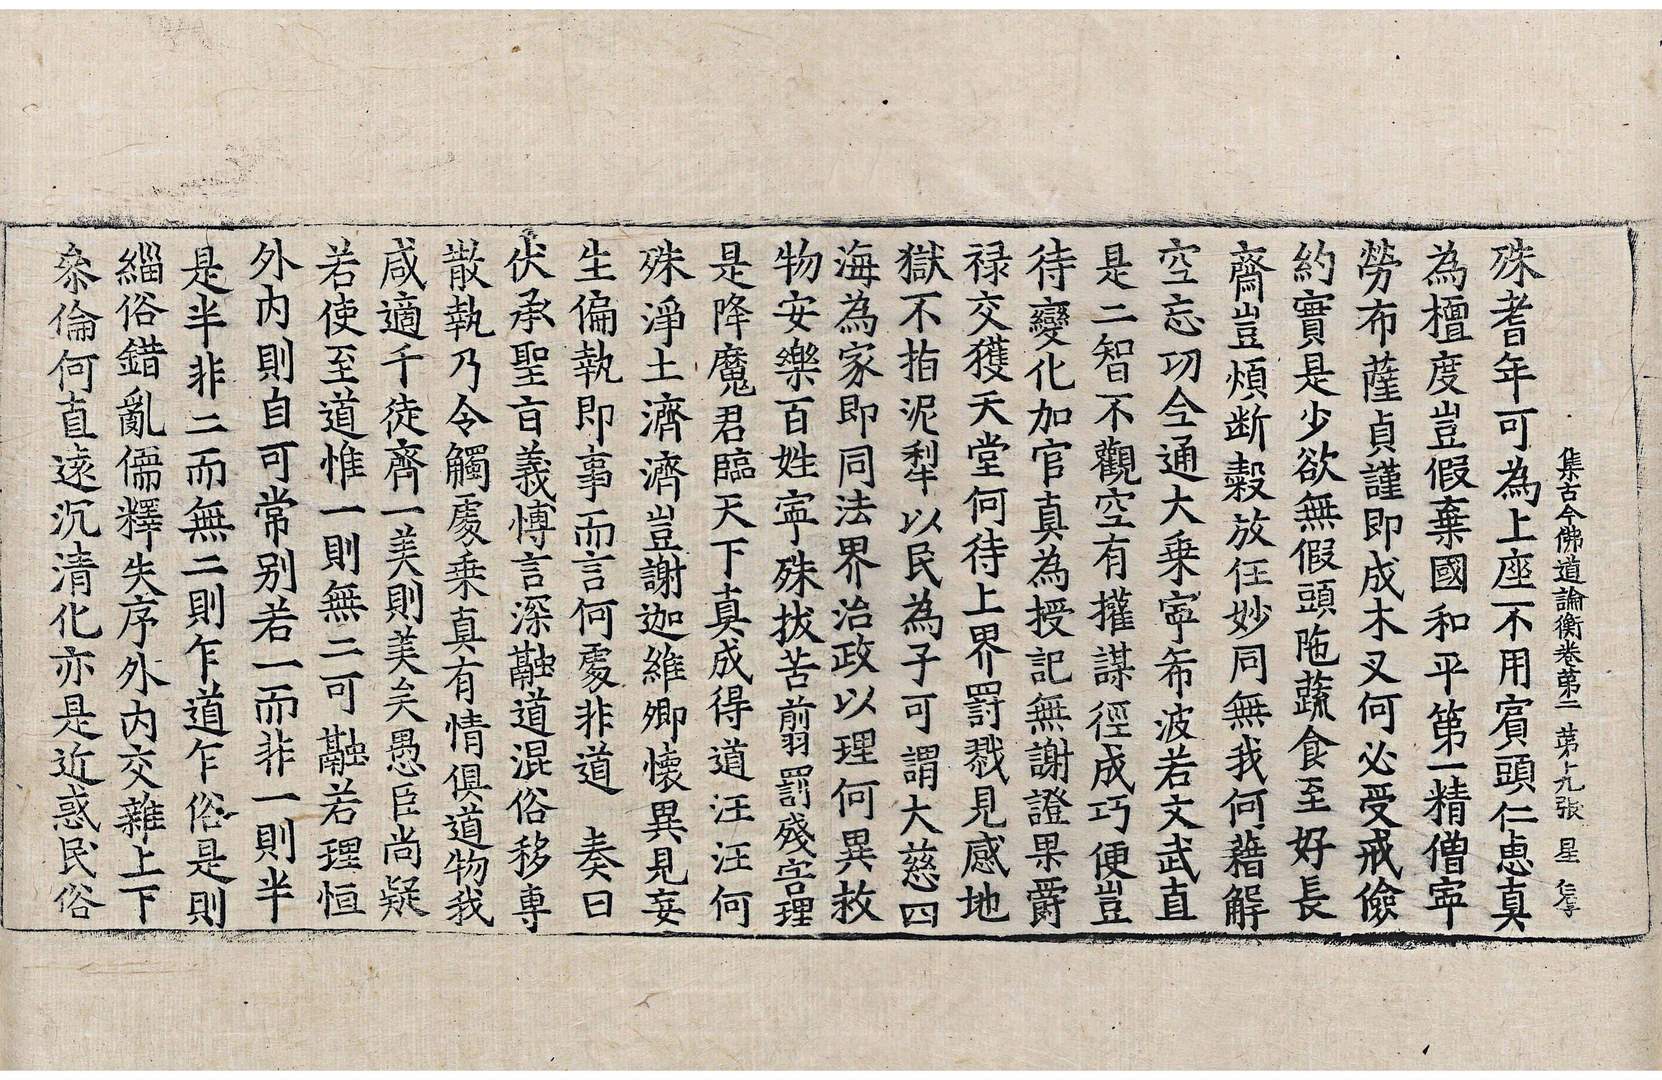 集古今佛道論衡卷第二　第十九張　星
殊耆年可為上座不用賓頭仁恵真
為檀度豈假棄國和平第一精僧寜
勞布薩貞謹即成木叉何必受戒儉
約實是少欲無假頭陁蔬食至好長
齋豈煩断穀放生妙同無我何藉解
空忘功全通大乗寜希波若文武直
是二智不觀空有權謀徑成巧便豈
待變化加官真為授記無謝證果爵
禄交獲天堂何待上界罰戮見感地
獄不指泥犁以民為子可謂大慈四
海為家即同法界治政以理何異救
物安樂百姓寜殊拔苦翦罰殘害理
是降魔君臨天下真成得道汪汪何
殊淨土濟濟豈謝迦維卿懷異見妄
生偏執即事而言何處非道　奏曰
伏承聖旨義愽言深融道混俗移專
散執乃令觸處乗真有情俱道物我
咸適千徒齊一美則美矣愚臣尚疑
若使至道惟一則無二可融若理恒
外内則自可常别若一而非一則半
是半非二而無二則乍道乍俗是則
緇俗錯亂儒釋失序外内交雜上下
叅倫何直遠沉清化亦是近惑民俗